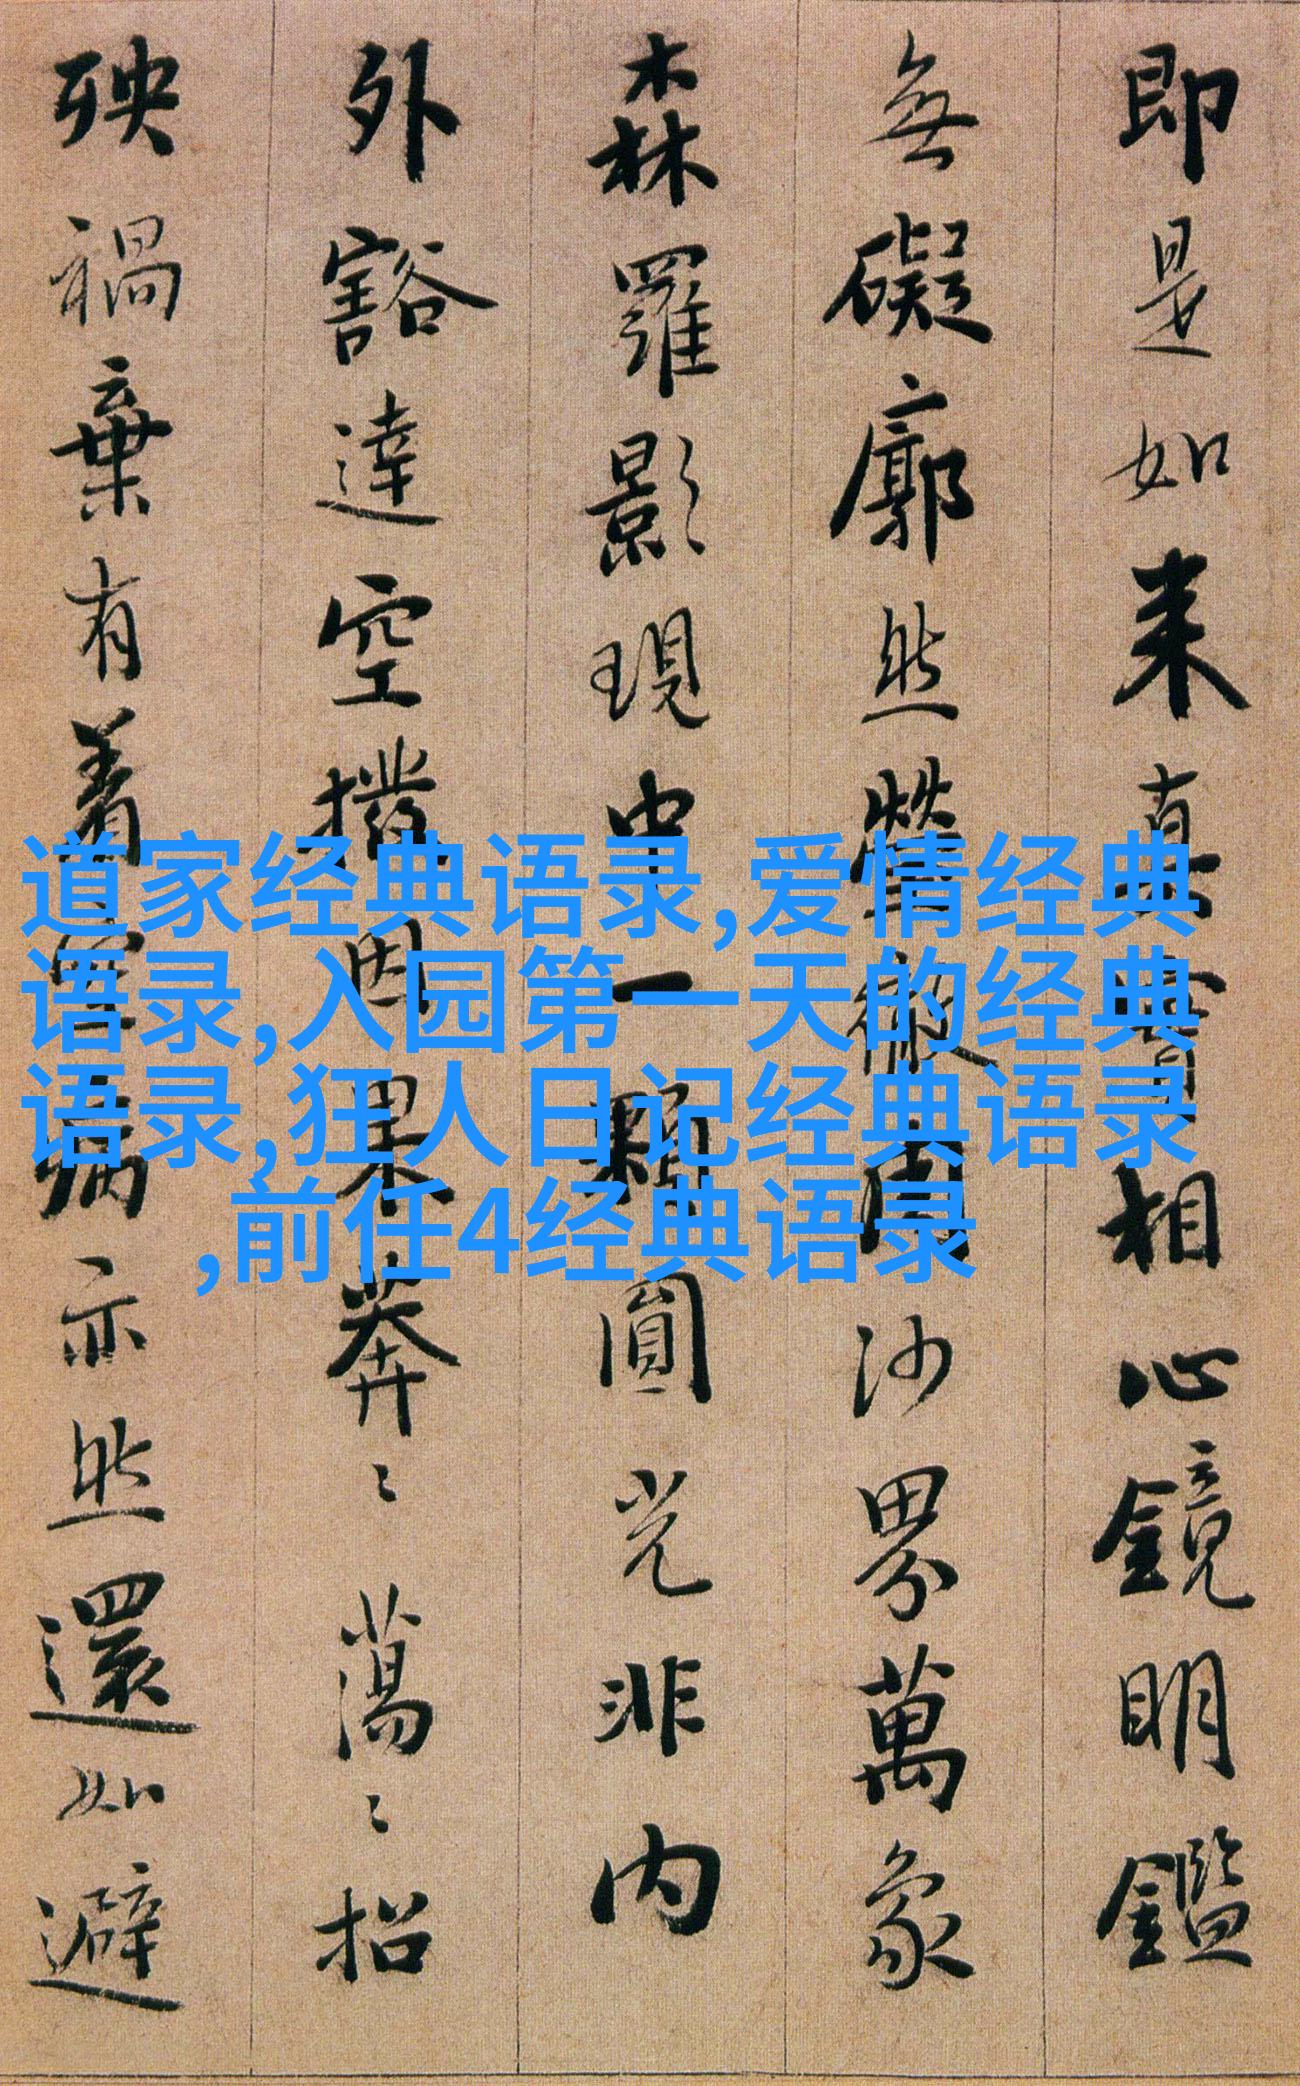 即是如来真實相心鏡明鑑
無礙廓然瑩徹周沙界萬象
森羅影現中一顆圓光非内
外豁達空撥因果莽〻蕩〻招
殃禍棄有着空病亦然還如避
道家经典语录,爱情经典
语录,入园第一天的经典
语录,狂人日记经典语录
,前任4经典语录